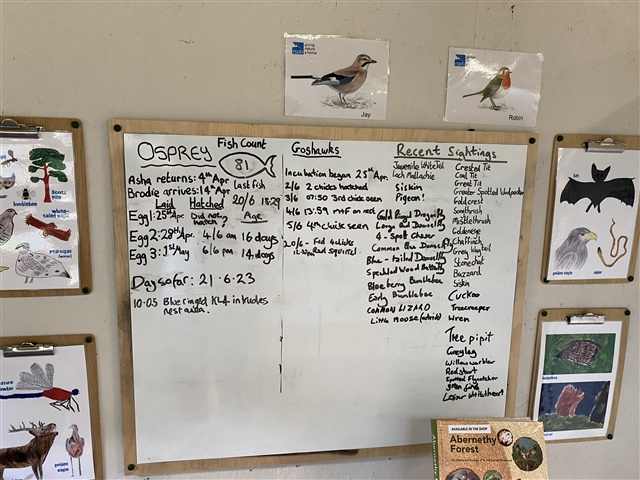 rspb
Jay
rspb
Robin
OSPREY
Fish Count
81
Last fish
20/6 18:29
Asha returns: 4th Apr
Brodie arrives: 14th Apr
Laid Hatched Age
Egg 1: 25th Apr. Did not hatch?
Egg 2: 28th Apr. 4/6 am 16 days
Egg 3: 1st May 6/6 pm 14 days
Day so far: 21.6.23
10:05 Blue ringed KL4 intrudes
nest area.
Goshawks
Incubation began 25th Apr.
2/6 2 chicks hatched
3/6 07:50 3rd chick seen
4/6 13:59 off nest
5/6 4th chick seen
20/6 - Fed 4 chicks
Red squirrel
Recent Sightings
Juvenile White Tail
Loch Mallachie
Siskin
Pigeon!
Gold Ringed Dragonfly
Large Red Damselfly
4-Spot Chaser
Common Blue Damselfly
Blue-tailed Damselfly
Speckled Wood Butterfly
Blaeberry Bumblebee
Early Bumblebee
COMMON LIZARD
Little Mouse (outside)
Crested Tit
Coal Tit
Great Tit
Greater Spotted Woodpecker
Goldcrest
Songthrush
Mistlethrush
Goldeneye
Chaffinch
Grey Wagtail
Stonechat
Buzzard
Siskin
Cuckoo
Treecreeper
Wren
Tree pipit
Greylag
Willow warbler
Redstart
Spotted Flycatcher
Lesser Whitethroat
Scots pine
bumblebee
white-tailed eagle
ptarmigan
golden eagle
bat
golden eagle
hedgehog
AVAILABLE IN THE SHOP
Abernethy
Forest